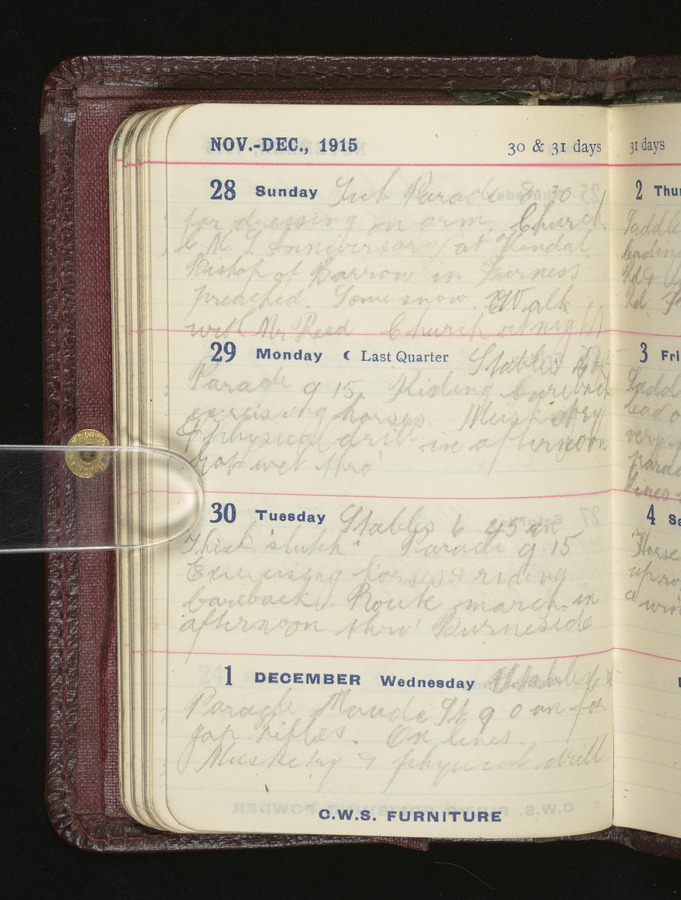 NOV.-DEC., 1915 30 & 31 days
28 Sunday Sick Parade 8 30
for dressing on arm. Church
C. M. S. Anniversary at Kendal
Bishop of Barrow in Furness
preached. Some snow. Walk
with Mr Reed Church at night
29 Monday Last Quarter Stables 6 45
Parade 9 15. Riding bareback
exercising horses. Musketry
& physical drill in afternoon
Got wet thro'
30 Tuesday Stables 6 45 am
Thick slutch. Parade 9.15
Exercising horses & riding
bareback. Route march in
afternoon thro' Burneside
1 DECEMBER Wednesday Stables 6
Parade Maude St 9 0 am for
Jap Rifles. On lines.
Musketry & physical drill
C.W.S. FURNITURE
31 days
2 Thu
3 Fri
4 Sa
Horse